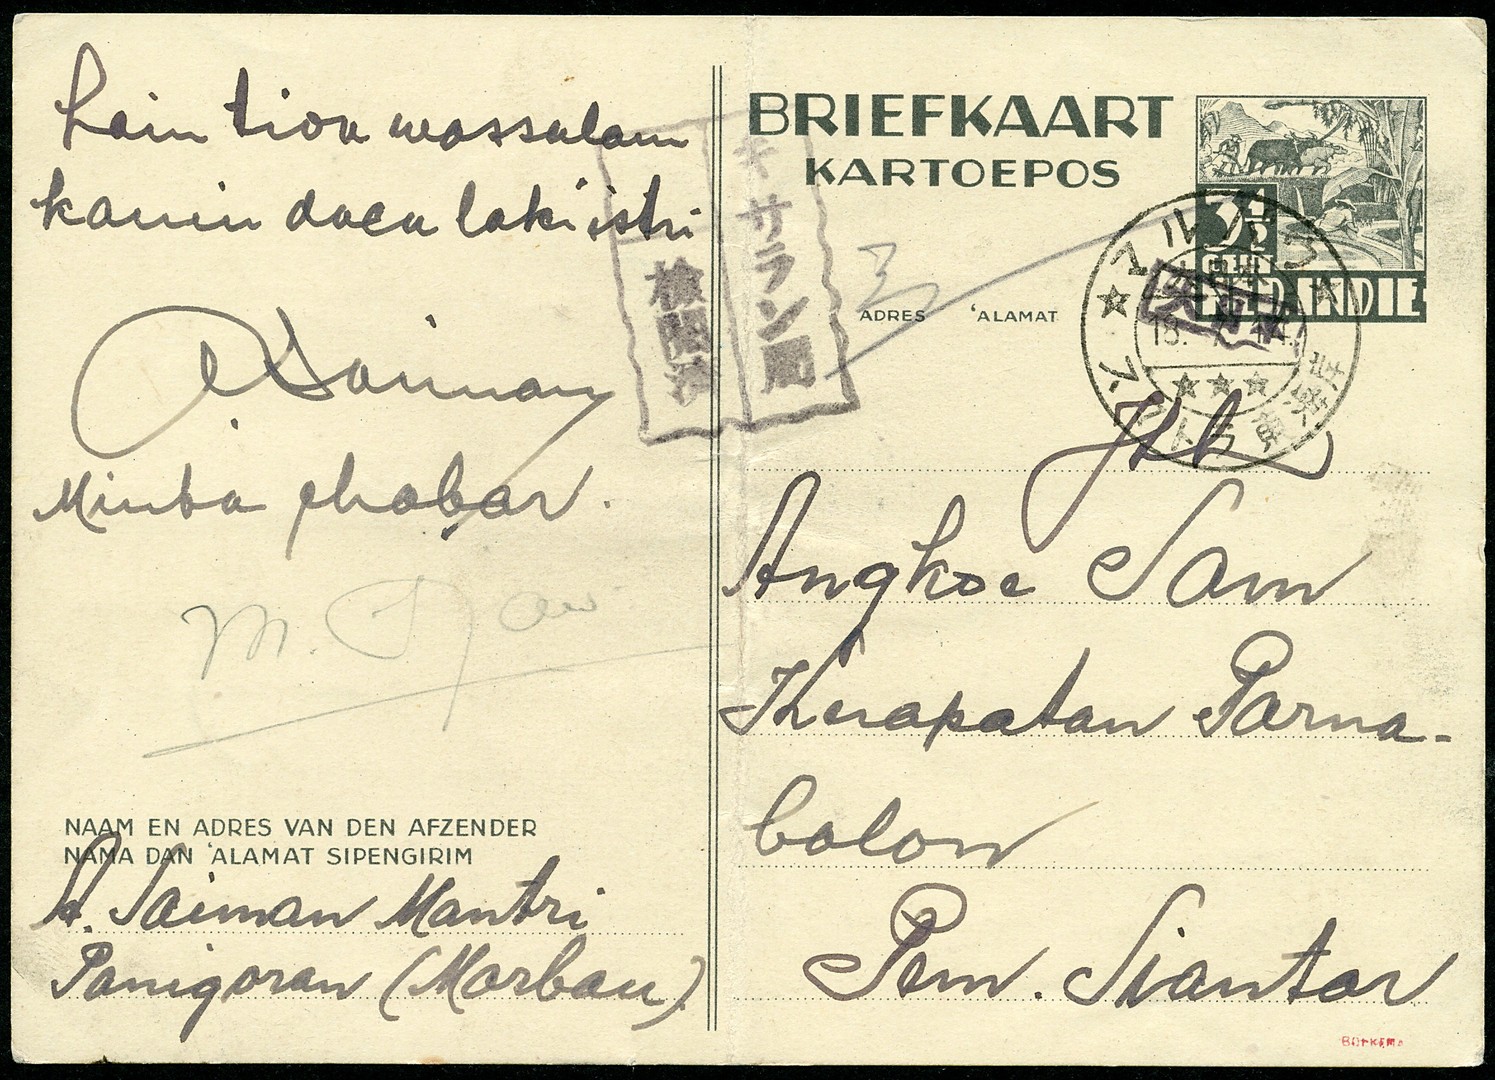 Lain tiou wassalam
kamin doea laki istri
Saiman
Minta chabar.
M.
NAAM EN ADRES VAN DEN AFZENDER
NAMA DAN 'ALAMAT SIPENGIRIM
A. Saiman Mantri
Panigoran (Marbau).
BRIEFKAART
KARTOEPOS
3½
CENT
NED. INDIE
ADRES 'ALAMAT
キサラン局
検閲済
マルバウ
スマトラ東海岸
18.
★★★
Jth
Angkoe Sam
Kerapatan Parna-
bolon
Pem. Siantar